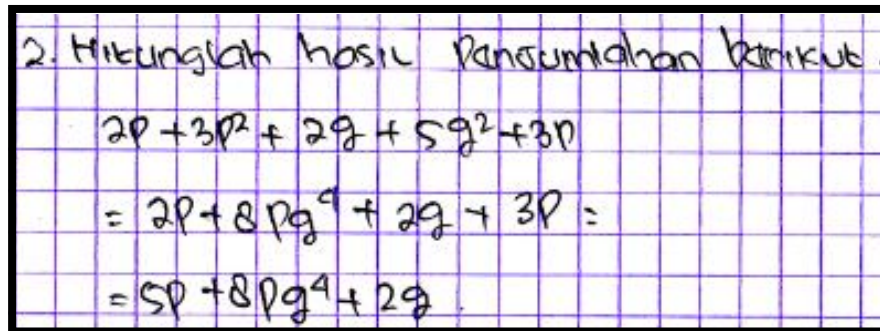 2. Hitunglah hasil Penjumlahan berikut.
2p + 3p² + 2g + 5g² + 3p
= 2p + 8pg⁴ + 2g + 3p =
= 5p + 8pg⁴ + 2g.